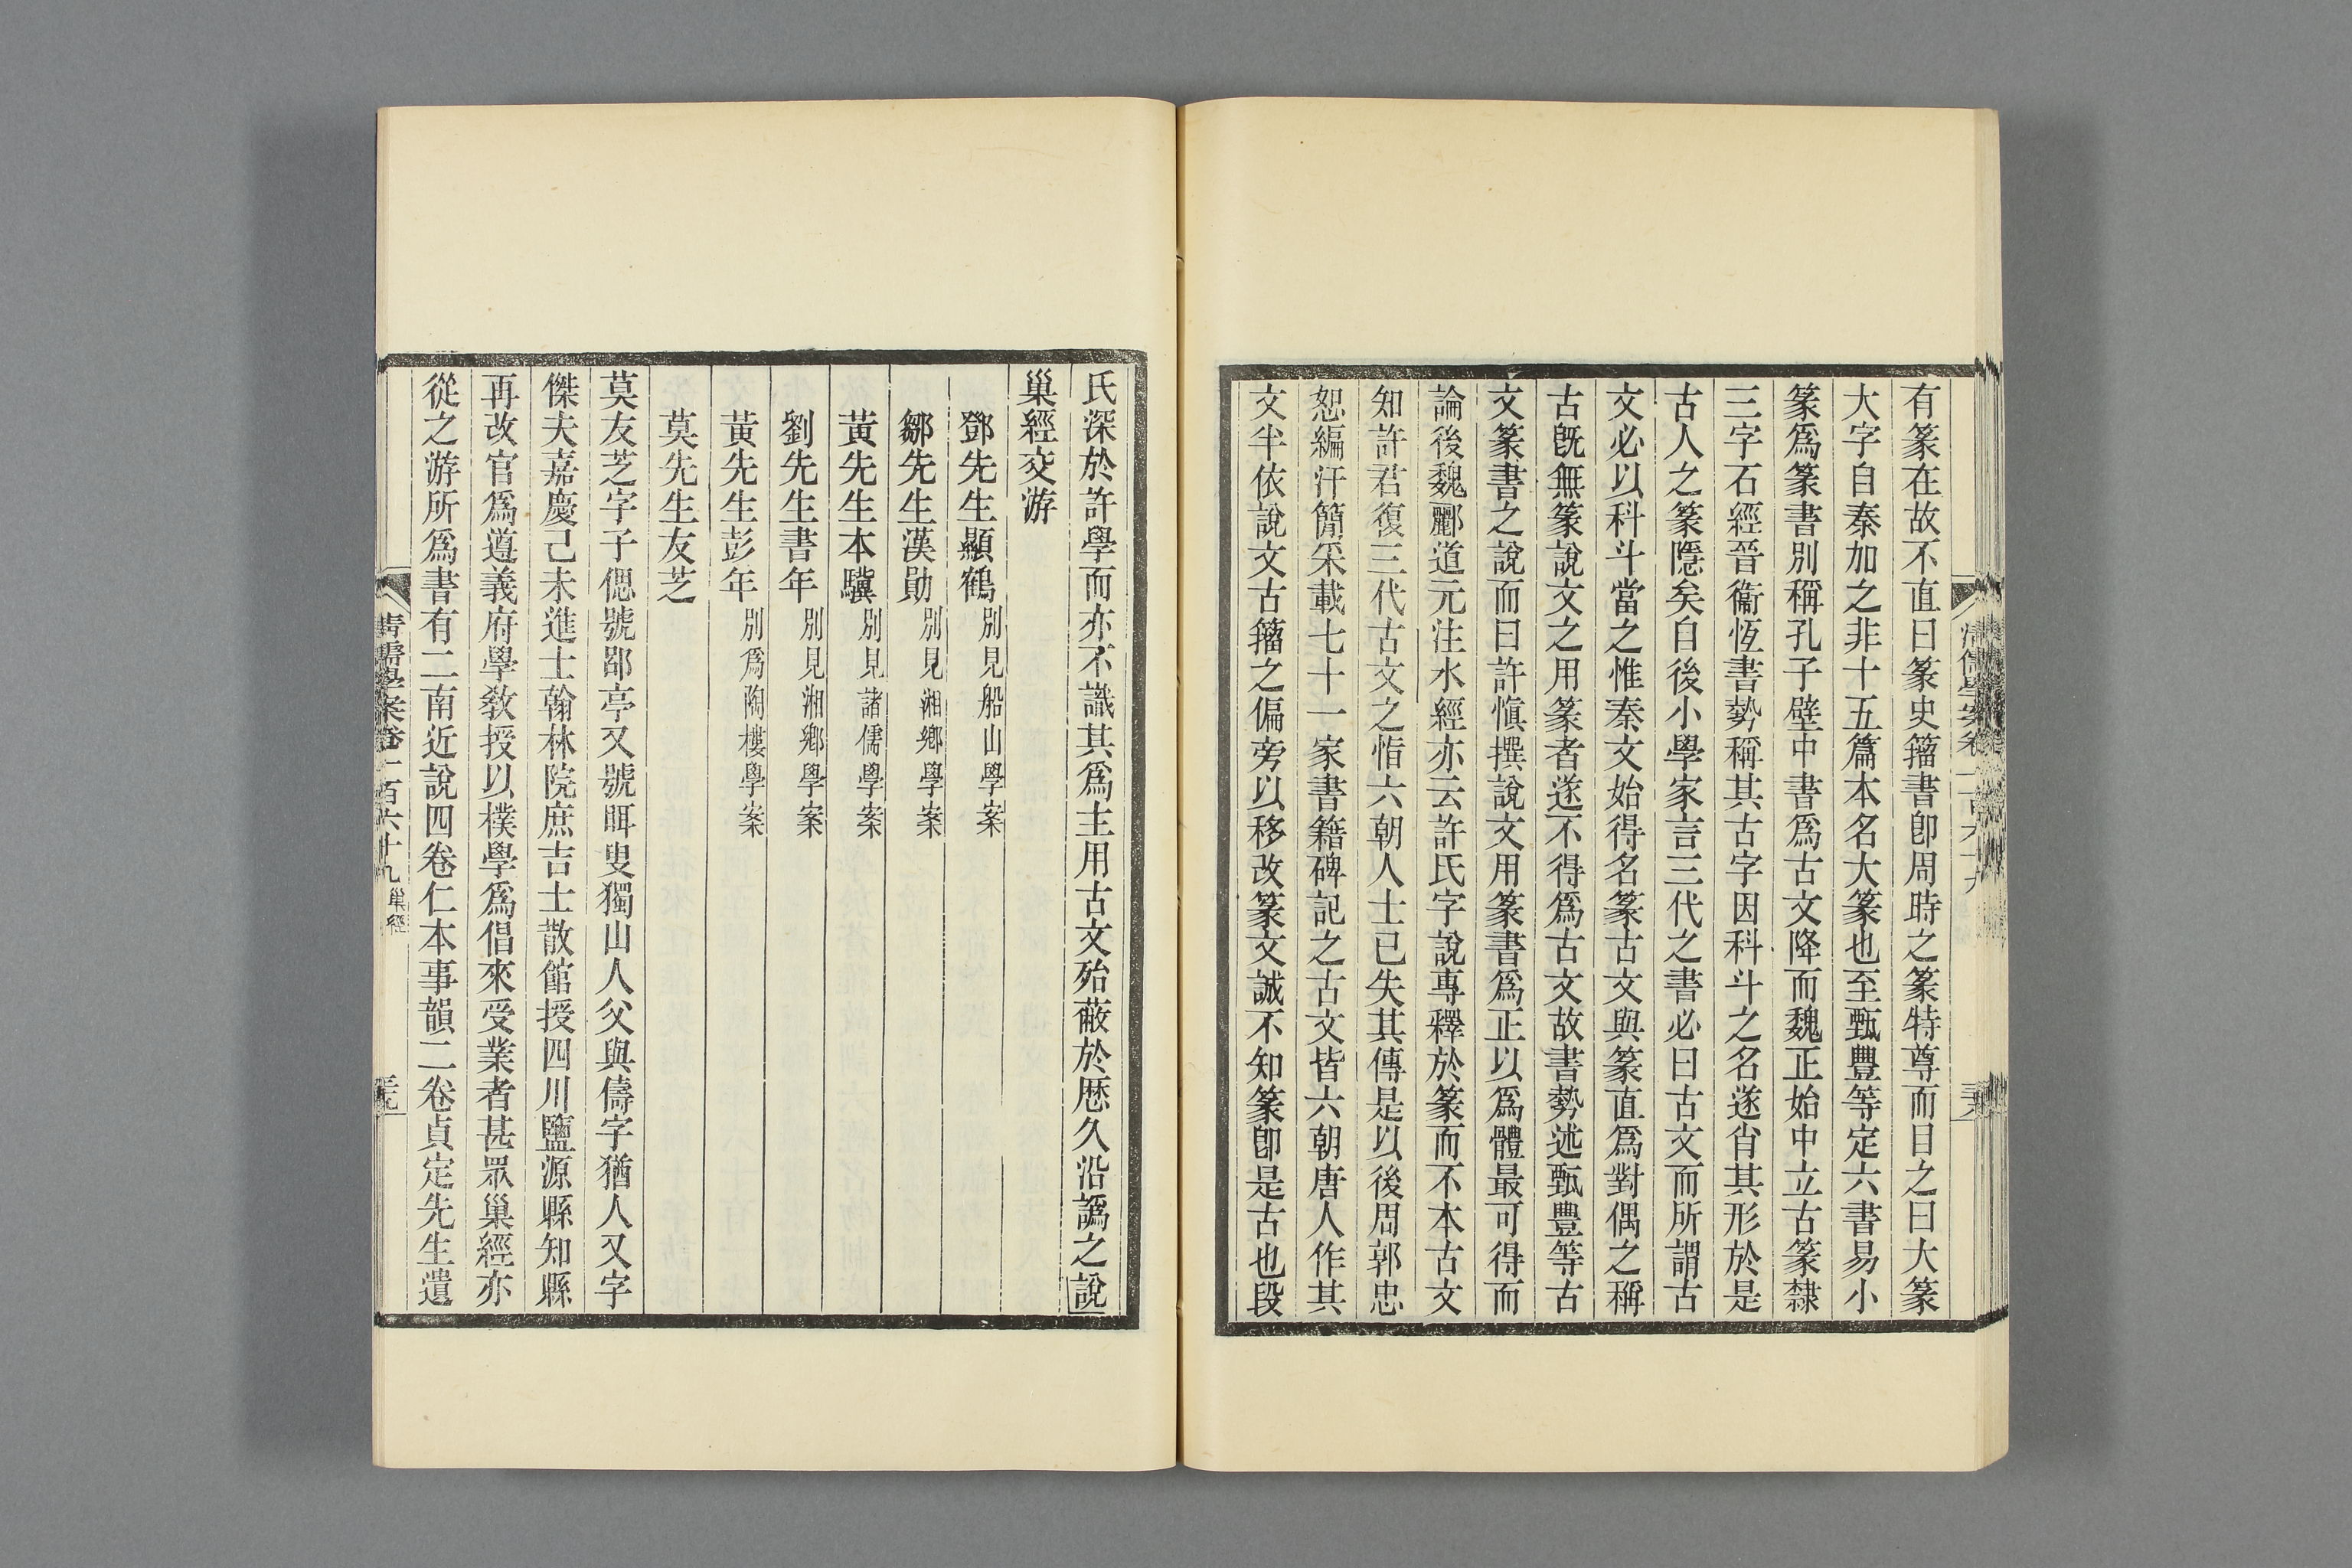 有篆在故不直曰篆史籀書卽周時之篆特尊而目之曰大篆
大字自秦加之非十五篇本名大篆也至甄豐等定六書易小
篆爲篆書別稱孔子壁中書爲古文降而魏正始中立古篆隸
三字石經晉衞恆書勢稱其古字因科斗之名遂肖其形於是
古人之篆隱矣自後小學家言三代之書必曰古文而所謂古
文必以科斗當之惟秦文始得名篆古文與篆直爲對偶之稱
古旣無篆說文之用篆者遂不得爲古文故書勢述甄豐等古
文篆書之說而曰許愼撰說文用篆書爲正以爲體最可得而
論後魏酈道元注水經亦云許氏字說專釋於篆而不本古文
知許君復三代古文之恉六朝人士已失其傳是以後周郭忠
恕編汗簡采載七十一家書籍碑記之古文皆六朝唐人作其
文半依說文古籀之偏旁以移改篆文誠不知篆卽是古也段
氏深於許學而亦不識其爲主用古文殆蔽於歷久沿譌之說
巢經交游
鄧先生顯鶴 別見船山學案
鄒先生漢勛 別見湘鄕學案
黃先生本驥 別見諸儒學案
劉先生書年 別見湘鄕學案
黃先生彭年 別爲陶樓學案
莫先生友芝
莫友芝字子偲號郘亭又號眲叟獨山人父與儔字猶人又字
傑夫嘉慶己未進士翰林院庶吉士散館授四川鹽源縣知縣
再改官爲遵義府學敎授以樸學爲倡來受業者甚眾巢經亦
從之游所爲書有二南近說四卷仁本事韻二卷貞定先生遺
淸儒學案卷二百六十九 巢經